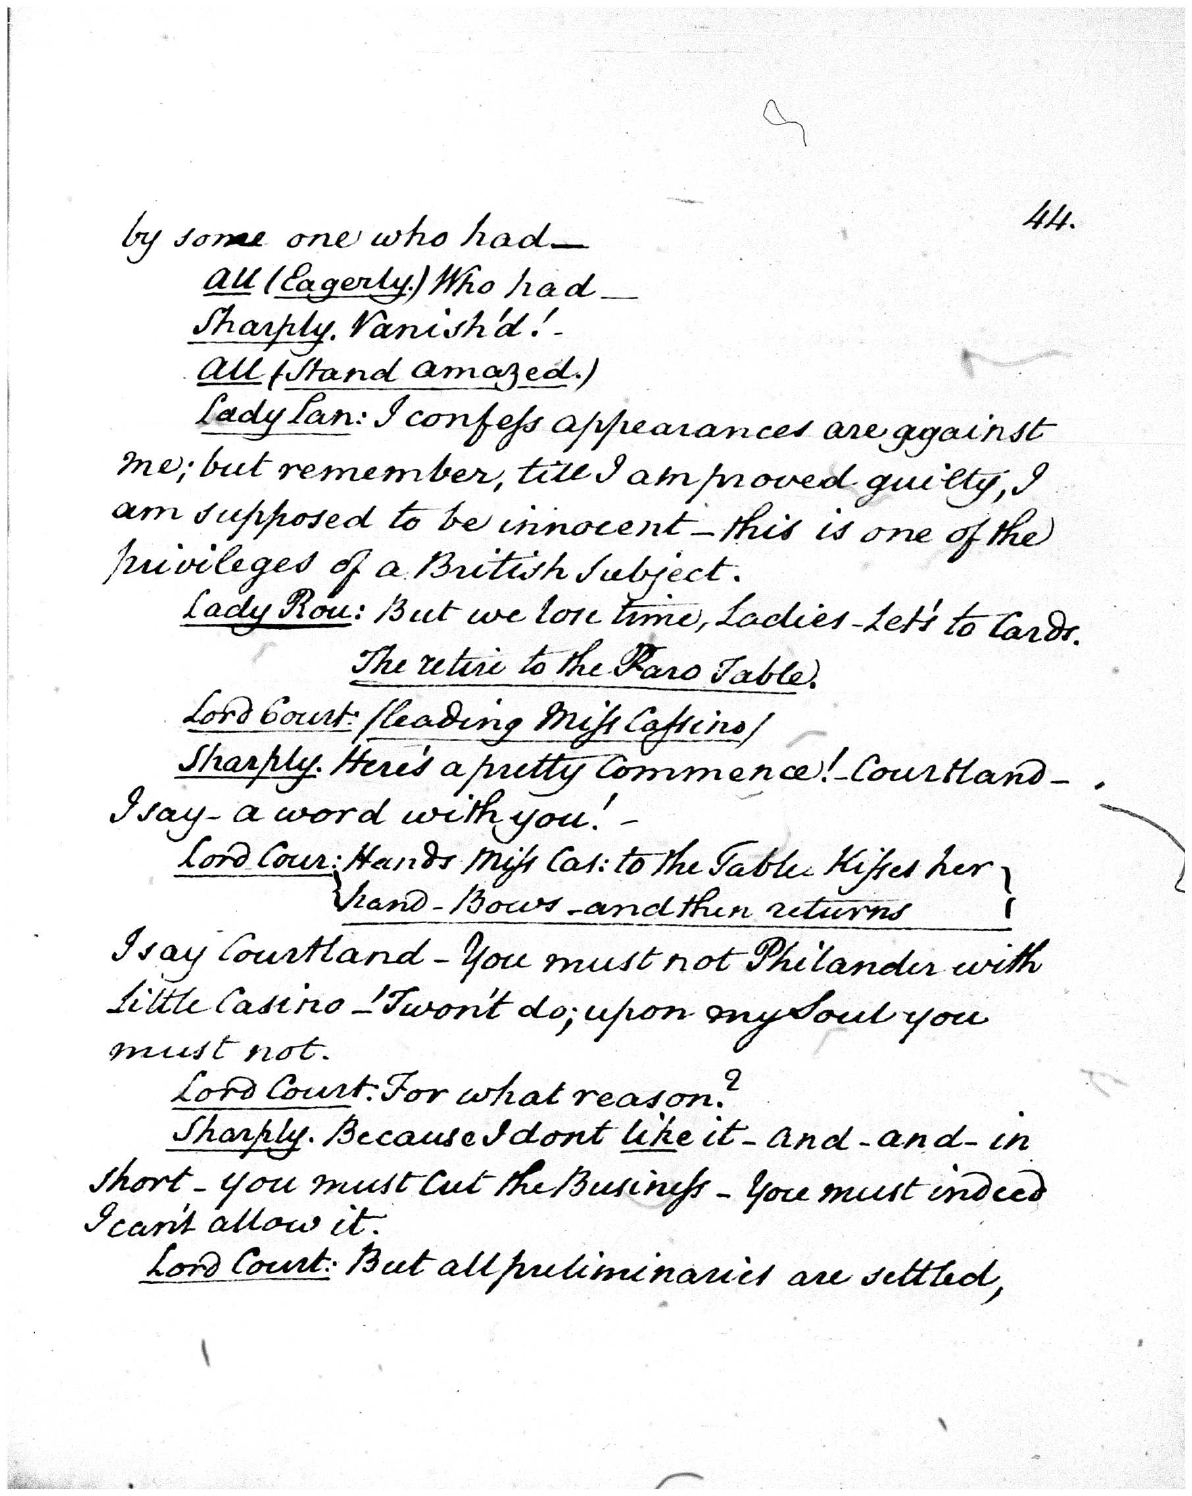 44.
by some one who had—
All (Eagerly.) Who had—
Sharply. Vanish'd! -
All (Stand amazed.)
Lady Lan: I confess appearances are against
me; but remember, till I am proved guilty, I
am supposed to be innocent - this is one of the
privileges of a British Subject.
Lady Rou: But we lose time, Ladies - Let's to Cards.
The retire to the Faro Table.
Lord Court: (leading Miss Cassino)
Sharply. Here's a pretty Commence! - Courtland -
I say - a word with you! -
Lord Cour: Hands Miss Cas: to the Table Kisses her
hand - Bows - and then returns
I say Courtland - You must not Philander with
Little Casino - 'Twon't do; upon my Soul you
must not.
Lord Court: For what reason?
Sharply. Because I dont like it - and - and - in
short - you must Cut the Business - You must indeed
I can't allow it.
Lord Court: But all preliminaries are settled,